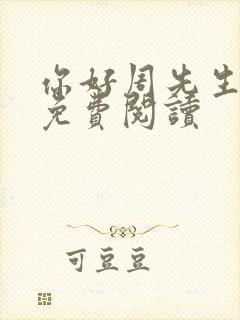 你好周先生
免費閱讀
可豆豆